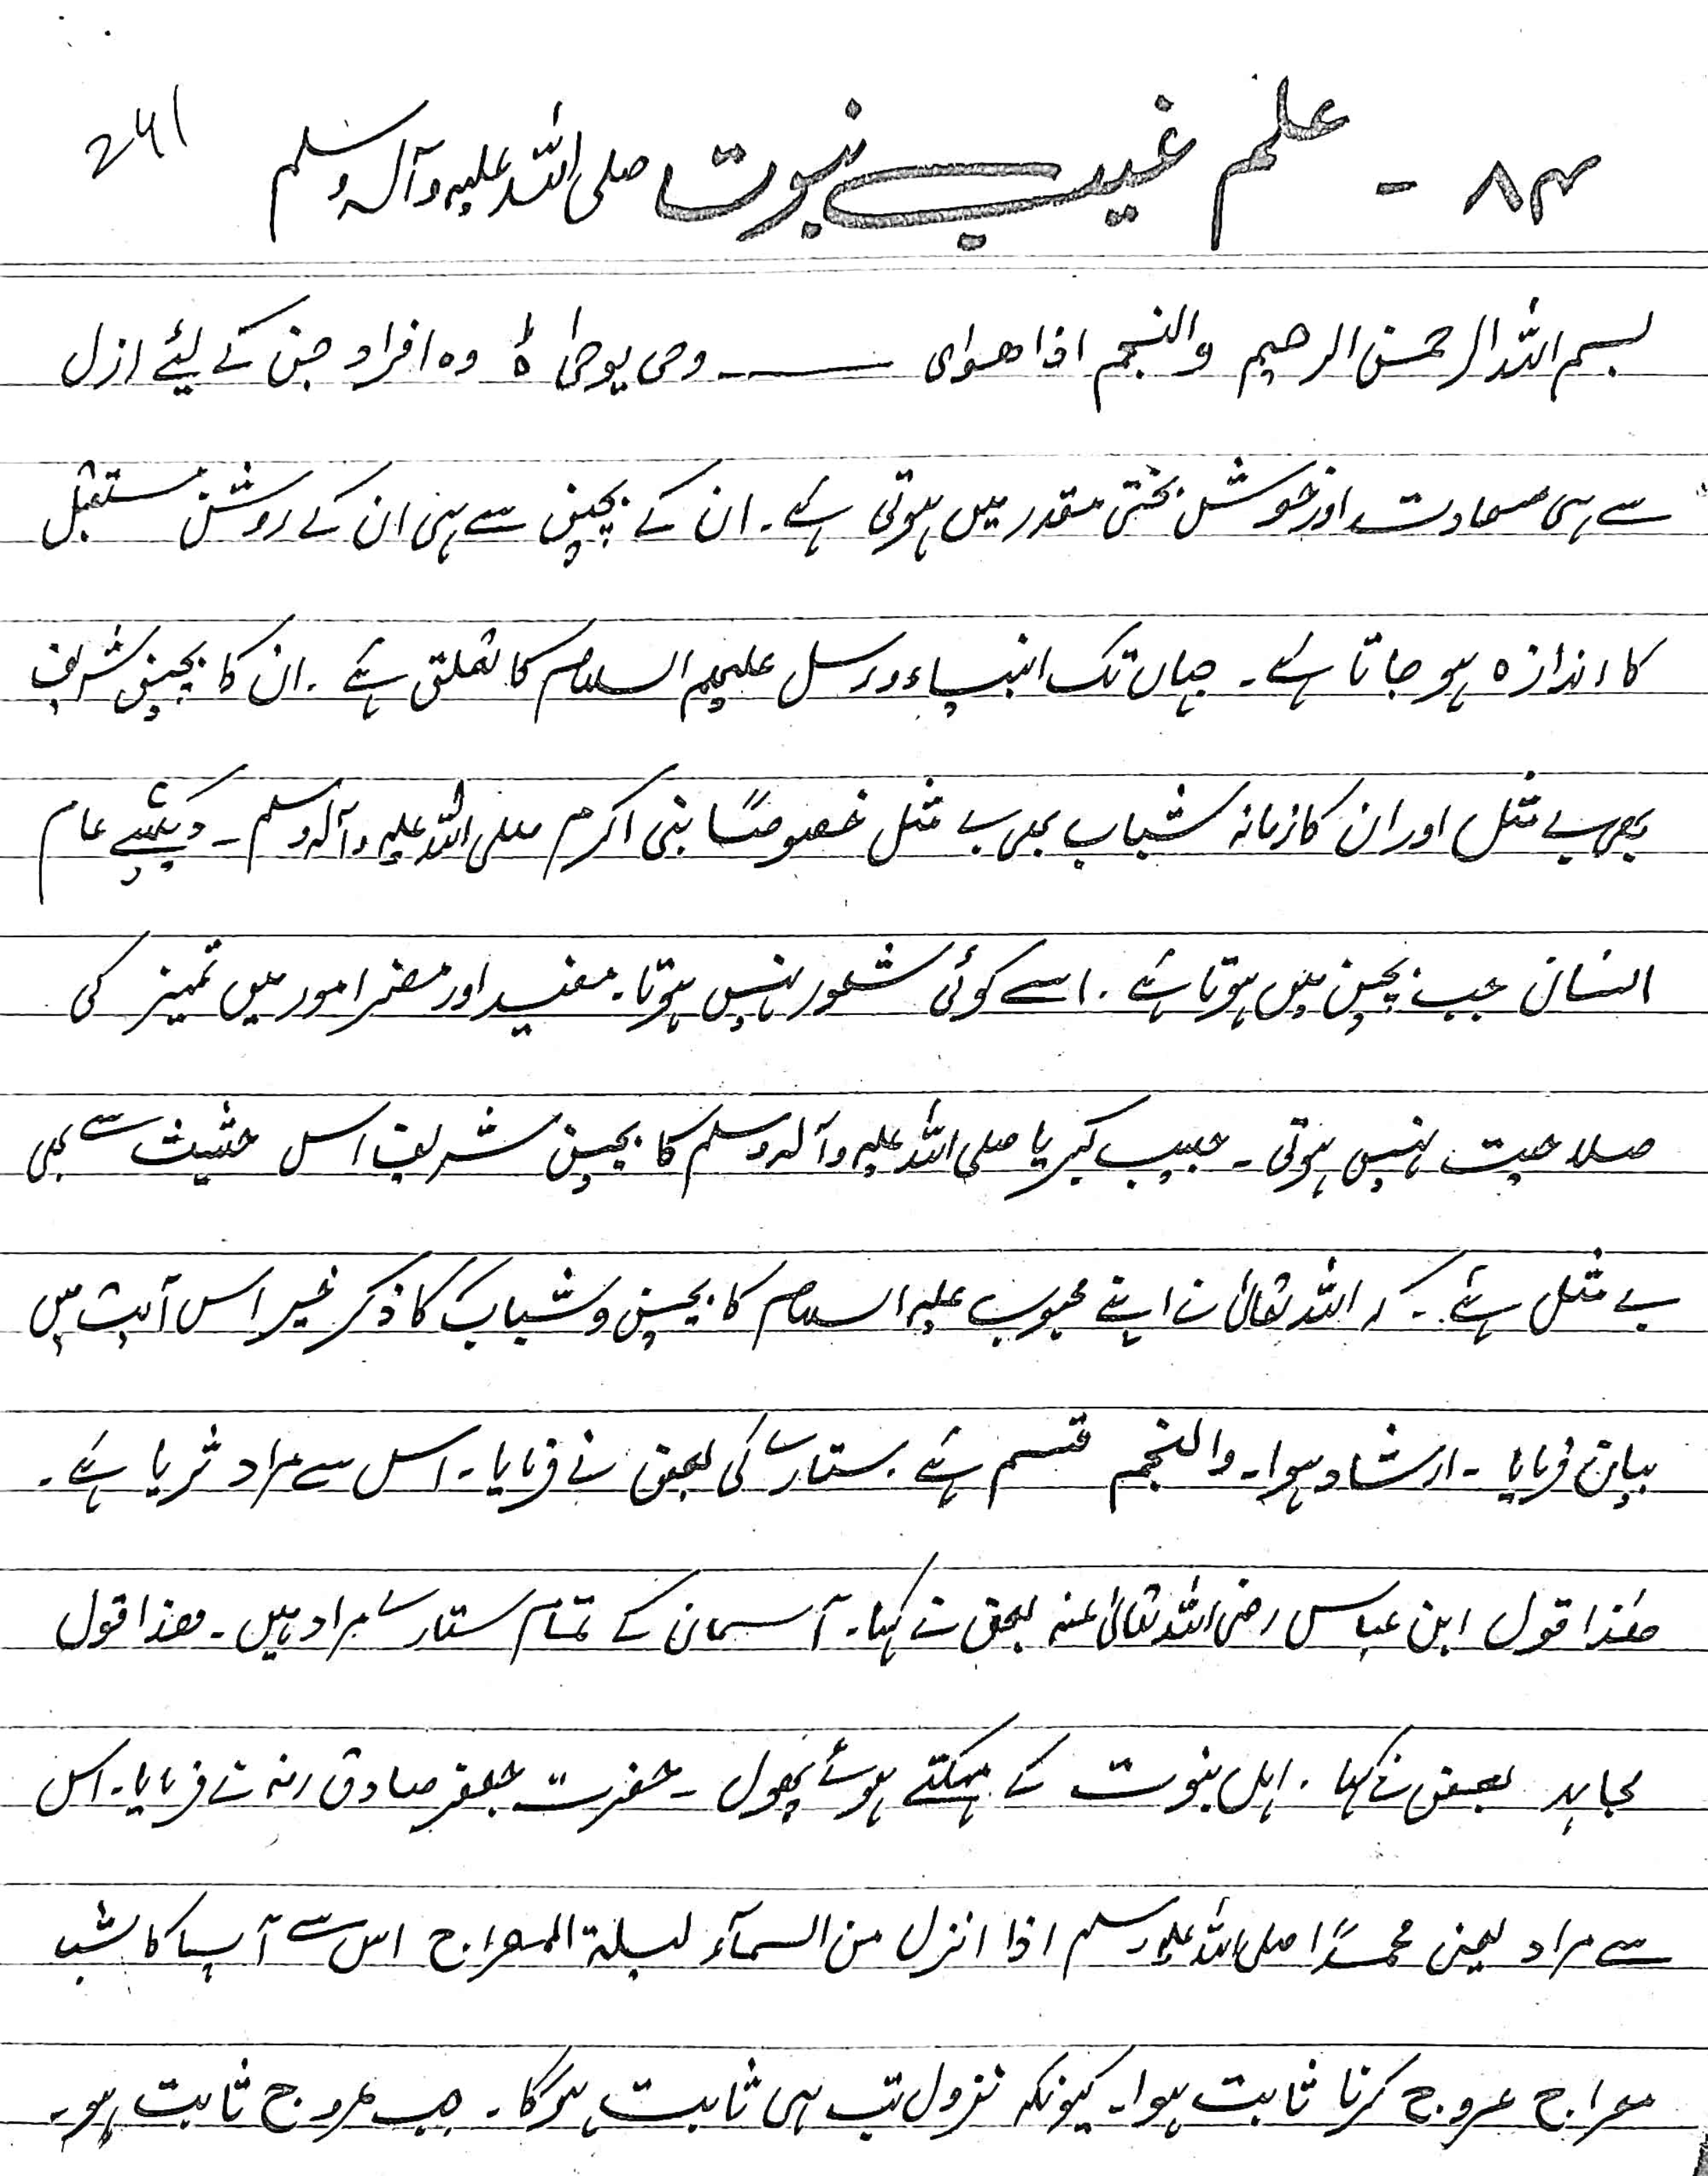 241
۸۴ - علم غیب نبوت صلی اللہ علیہ وآلہ وسلم
بسم اللہ الرحمن الرحیم والنجم اذا ھوای ــــــ وحی یوحیٰ ہ وہ افراد جن کے لیئے ازل
سے ہی سعادت اور خوش بختی مقدر میں ہوتی ہے۔ ان کے بچپن سے ہی ان کے روشن مستقبل
کا اندازہ ہو جاتا ہے۔ جہاں تک انبیاء و رسل علیہم السلام کا تعلق ہے۔ ان کا بچپن شریف
بھی بے مثل اور ان کا زمانہ شباب بھی بے مثل خصوصًا نبی اکرم صلی اللہ علیہ وآلہ وسلم۔ دیکھیے عام
انسان جب بچپن میں ہوتا ہے۔ اسے کوئی شعور نہیں ہوتا۔ مفید اور مضر امور میں تمیز کی
صلاحیت نہیں ہوتی۔ حبیب کبریا صلی اللہ علیہ وآلہ وسلم کا بچپن شریف اس حیثیت سے بھی
بے مثل ہے۔ کہ اللہ تعالیٰ نے اپنے محبوب علیہ السلام کا بچپن و شباب کا ذکر خیر اس آیت میں
بیان فرمایا۔ ارشاد ہوا۔ والنجم قسم ہے ستارے کی بعض نے فرمایا۔ اس سے مراد ثریا ہے۔
ھٰذا قول ابن عباس رضی اللہ تعالیٰ عنہ بعض نے کہا۔ آسمان کے تمام ستارے مراد ہیں۔ ھذا قول
مجاہد بعض نے کہا۔ اہل نبوت کے مہکتے ہوئے پھول۔ حضرت جعفر صادق رضہ نے فرمایا۔ اس
سے مراد یعنی محمدًا صلی اللہ علیہ وسلم اذا انزل من السمآء لیلۃ المعراج اس سے آپ کا شب
معراج عروج کرنا ثابت ہوا۔ کیونکہ نزول تب ہی ثابت ہوگا۔ جب عروج ثابت ہو۔